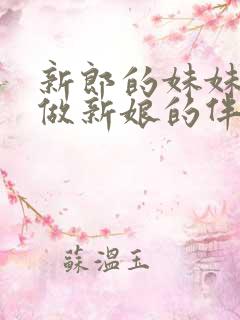 新郎的妹妹
做新娘的伴
蘇溫玉